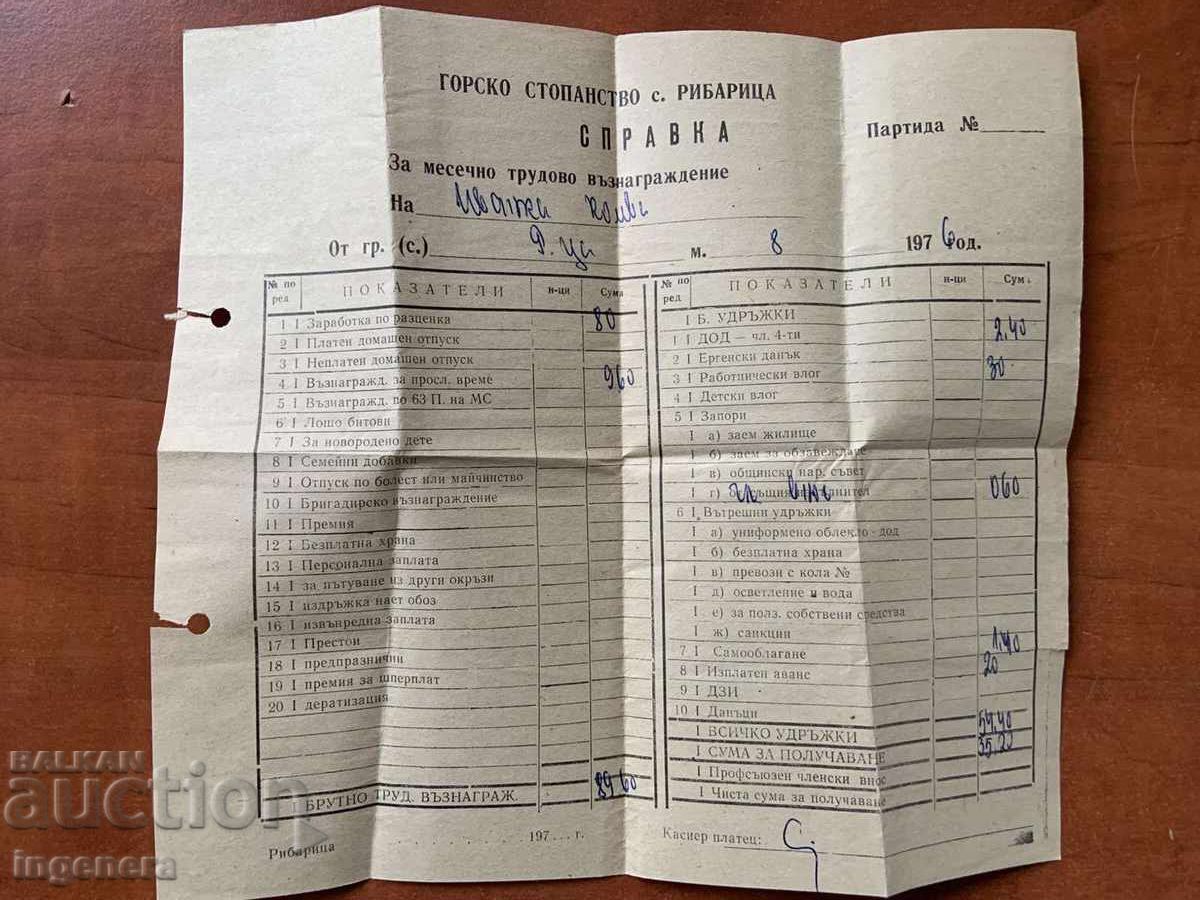 ГОРСКО СТОПАНСТВО с. РИБАРИЦА
СПРАВКА
Партида №
За месечно трудово възнаграждение
На
От гр. (с.) м. 8 1976 год.
№ по ред. ПОКАЗАТЕЛИ н-ци Сума
1 I Заработка по разценка 80
2 I Платен домашен отпуск
3 I Неплатен домашен отпуск
4 I Възнагражд. за просл. време 960
5 I Възнагражд. по 63 П. на МС
6 I Лошо битови
7 I За новородено дете
8 I Семейни добавки
9 I Отпуск по болест или майчинство
10 I Бригадирско възнаграждение
11 I Премия
12 I Безплатна храна
13 I Персонална заплата
14 I за пътуване из други окръзи
15 I издръжка нает обоз
16 I извънредна заплата
17 I Престои
18 I предпразнични
19 I премия за шперплат
20 I дератизация
I БРУТНО ТРУД. ВЪЗНАГРАЖ. 89 60
Рибарица 197... г.
№ по ред. ПОКАЗАТЕЛИ н-ци Сума
I Б. УДРЪЖКИ
1 I ДОД — чл. 4-ти 2,40
2 I Ергенски данък
3 I Работнически влог 30
4 I Детски влог
5 I Запори
I а) заем жилище
I б) заем за обзавеждане
I в) общински нар. съвет
I г) 060
6 I Вътрешни удръжки
I а) униформено облекло-дод
I б) безплатна храна
I в) превози с кола №
I д) осветление и вода
I е) за полз. собствени средства
I ж) санкции
7 I Самооблагане 1,40
8 I Изплатен аванс 20
9 I ДЗИ
10 I Данъци
I ВСИЧКО УДРЪЖКИ 54,40
I СУМА ЗА ПОЛУЧАВАНЕ 35,20
I Профсъюзен членски внос
I Чиста сума за получаване
Касиер платец:
BALKAN
auction
ingenera